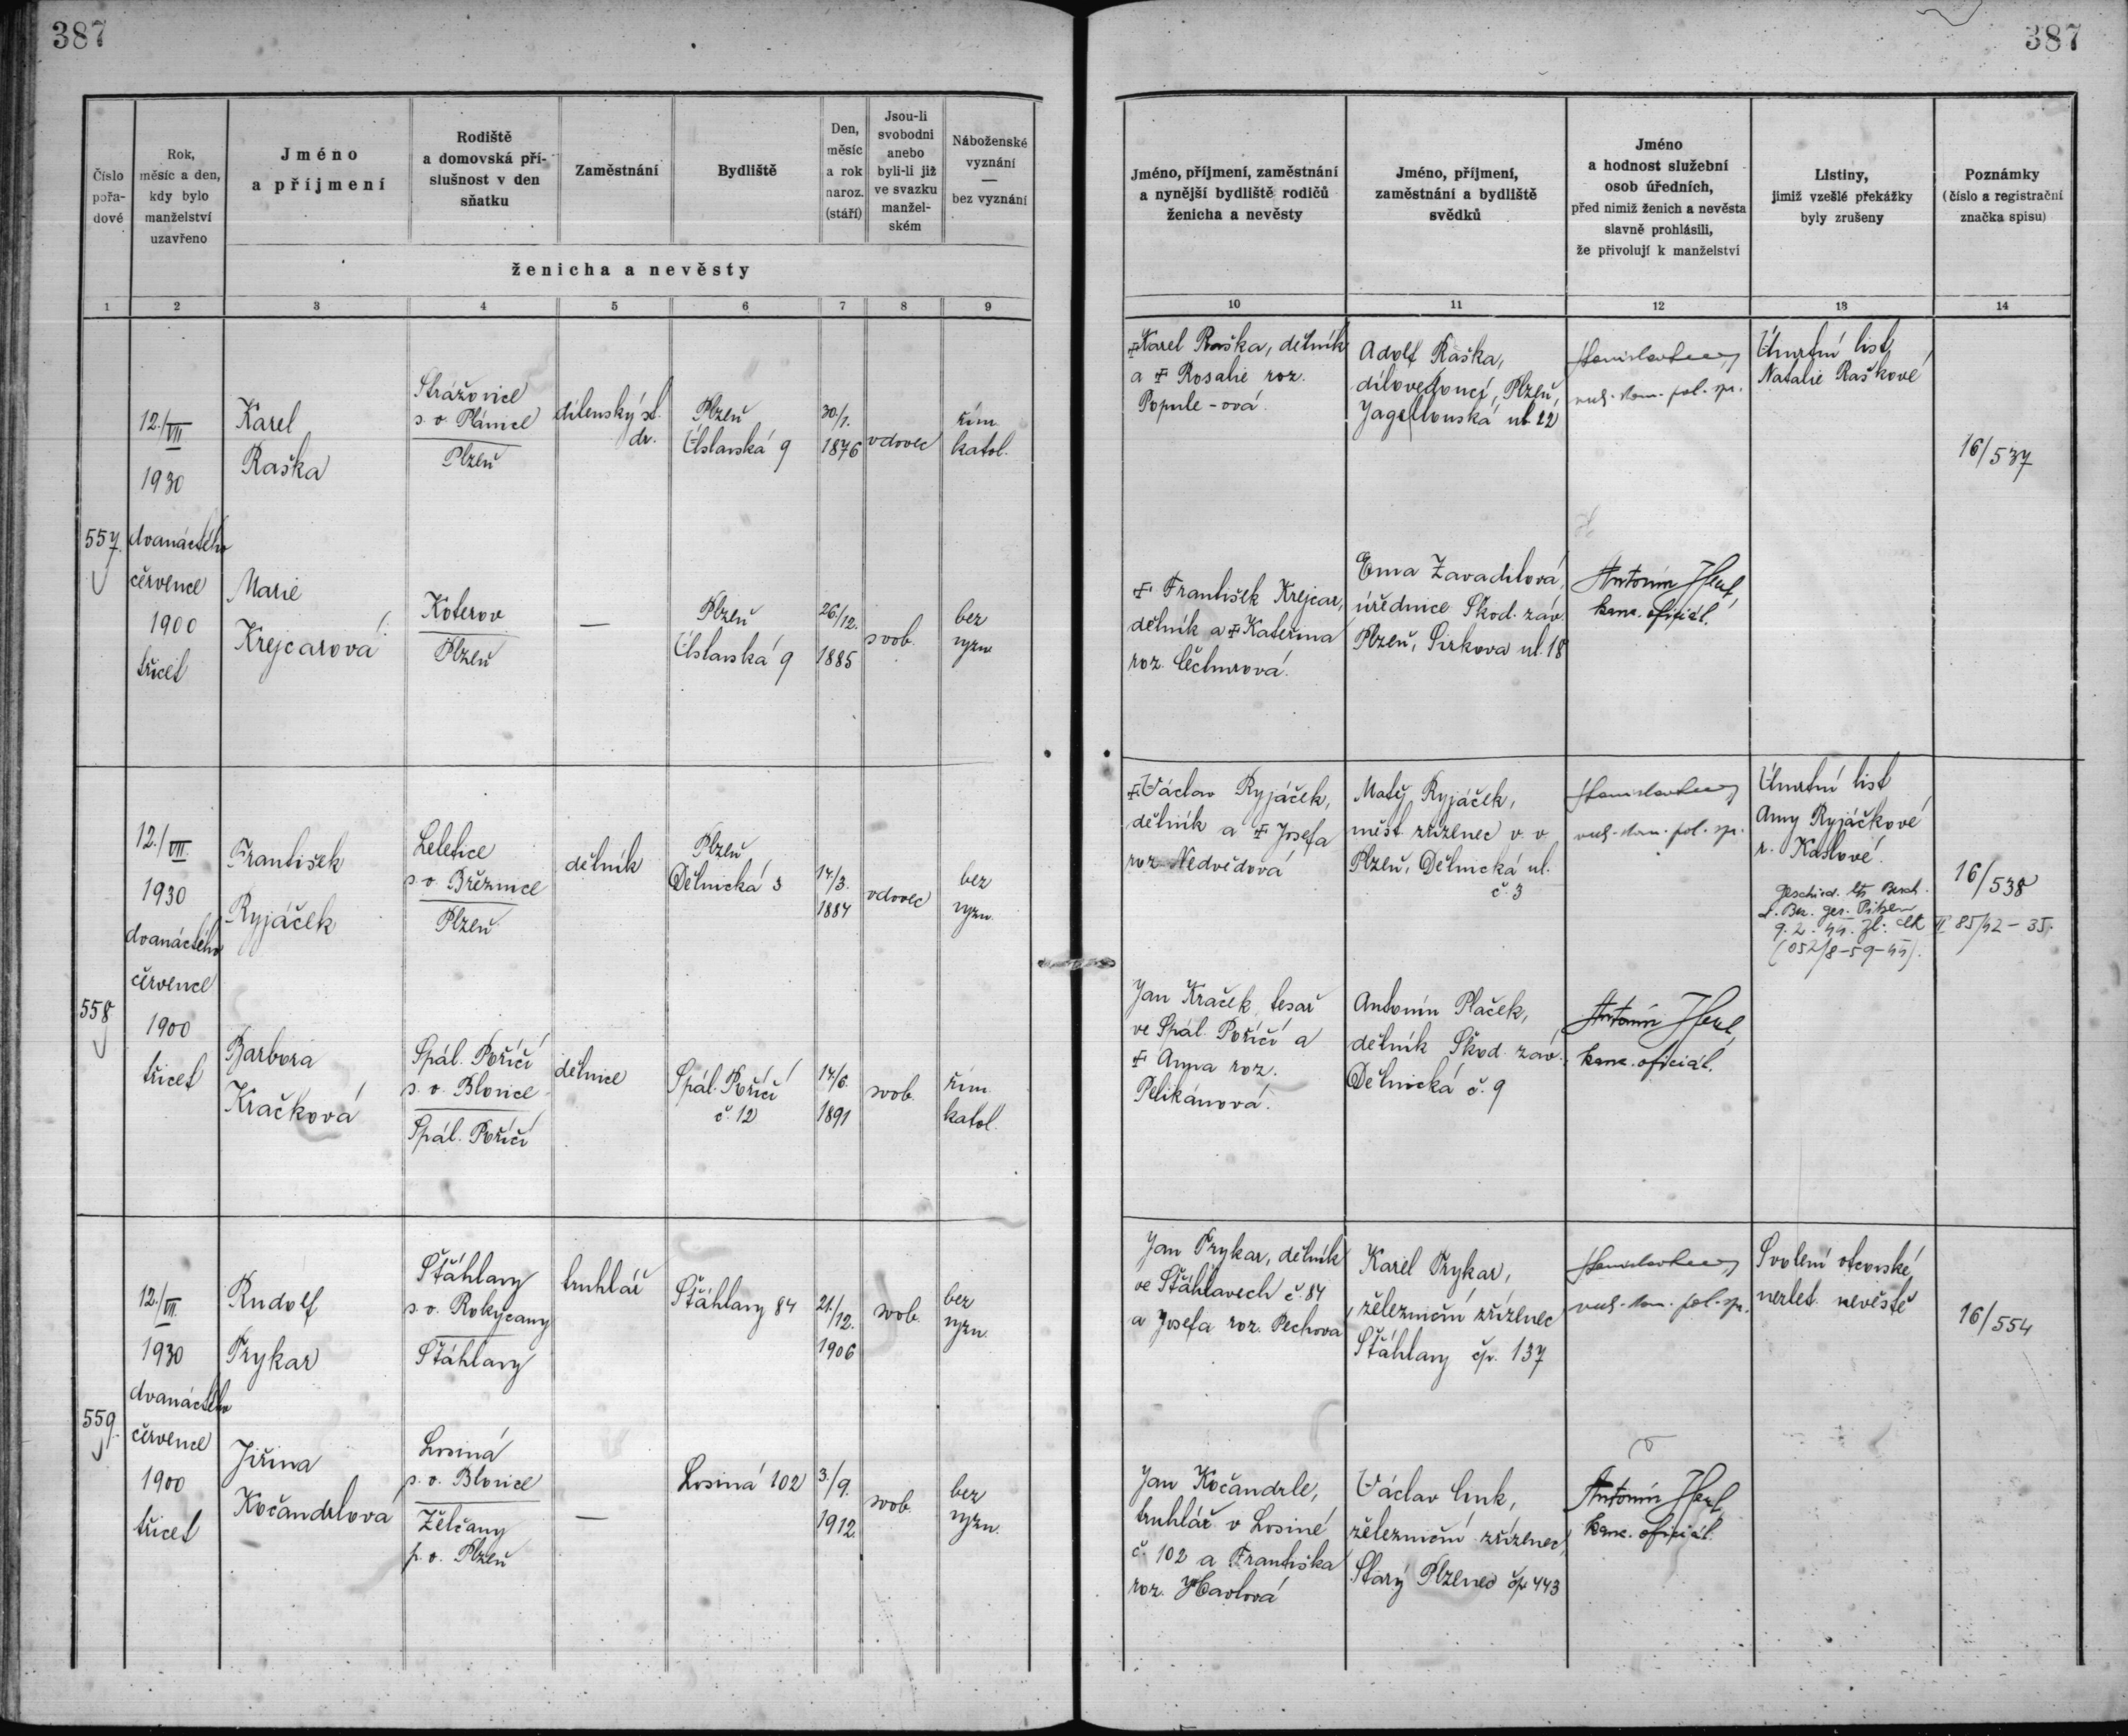 387
387
Číslo pořa-dové
Rok, měsíc a den, kdy bylo manželství uzavřeno
Jméno a příjmení
Rodiště a domovská pří-slušnost v den sňatku
Zaměstnání
Bydliště
Den, měsíc a rok naroz. (stáří)
Jsou-li svobodni anebo byli-li již ve svazku manžel-ském
Náboženské vyznání — bez vyznání
ženicha a nevěsty
Jméno, příjmení, zaměstnání a nynější bydliště rodičů ženicha a nevěsty
Jméno, příjmení, zaměstnání a bydliště svědků
Jméno a hodnost služební osob úředních, před nimiž ženich a nevěsta slavně prohlásili, že přivolují k manželství
Listiny, jimiž vzešlé překážky byly zrušeny
Poznámky (číslo a registrační značka spisu)
1 2 3 4 5 6 7 8 9
10 11 12 13 14
557.
12./VII
1930
dvanáctého
července
1900
třicet
Karel
Raška
Strážovice
s. o. Plánice
Plzeň
dílenský st.
dr.
Plzeň
Úslavská 9
30/1.
1876
vdovec
řím.
katol.
Marie
Krejcarová
Koterov
Plzeň
—
Plzeň
Úslavská 9
26/12.
1885
svob.
bez
vyzn.
Karel Raška, dělník
a Rosalie roz.
Popule-ová.
Adolf Raška,
dílovedoucí, Plzeň,
Jagellonská ul. 22
Úmrtní list
Natalie Raškové
16/537
František Krejcar,
dělník a Kateřina
roz. Čechurová.
Ema Zavadilová,
úřednice Škod. záv.
Plzeň, Sirkova ul. 18
Antonín
kanc. oficiál.
558
12./VII.
1930
dvanáctého
července
1900
třicet
František
Ryjáček
Leletice
s. o. Březnice
Plzeň
dělník
Plzeň
Dělnická 3
14/3.
1884
vdovec
bez
vyzn.
Barbora
Kračková
Spál. Poříčí
s. o. Blovice
Spál. Poříčí
dělnice
Spál. Poříčí
č. 12
14/6.
1891
svob.
řím.
katol.
Václav Ryjáček,
dělník a Josefa
roz. Nedvědová
Matěj Ryjáček,
měst. zřízenec v. v.
Plzeň, Dělnická ul.
č. 3
Úmrtní list
Anny Ryjáčkové
r. Kaslové.
16/538
Jan Kraček, tesař
ve Spál. Poříčí a
Anna roz.
Pelikánová.
Antonín Plaček,
dělník Škod. záv.
Dělnická č. 9
Antonín
kanc. oficiál.
559.
12./VII.
1930
dvanáctého
července
1900
třicet
Rudolf
Trykar
Šťáhlavy
s. o. Rokycany
Šťáhlavy
truhlář
Šťáhlavy 84
21/12.
1906
svob.
bez
vyzn.
Jiřina
Kočandrlová
Losiná
p. o. Blovice
Želčany
p. o. Plzeň
—
Losiná 102
3./9.
1912
svob.
bez
vyzn.
Jan Trykar, dělník
ve Šťáhlavech č. 84
a Josefa roz. Pechova
Karel Trykar,
železniční zřízenec
Šťáhlavy čp. 137
Svolení otcovské
nezlet. nevěstě
16/554
Jan Kočandrle,
truhlář v Losiné
č. 102 a Františka
roz. Havlová
Václav
železniční zřízenec,
Starý Plzenec čp. 443
Antonín
kanc. oficiál.